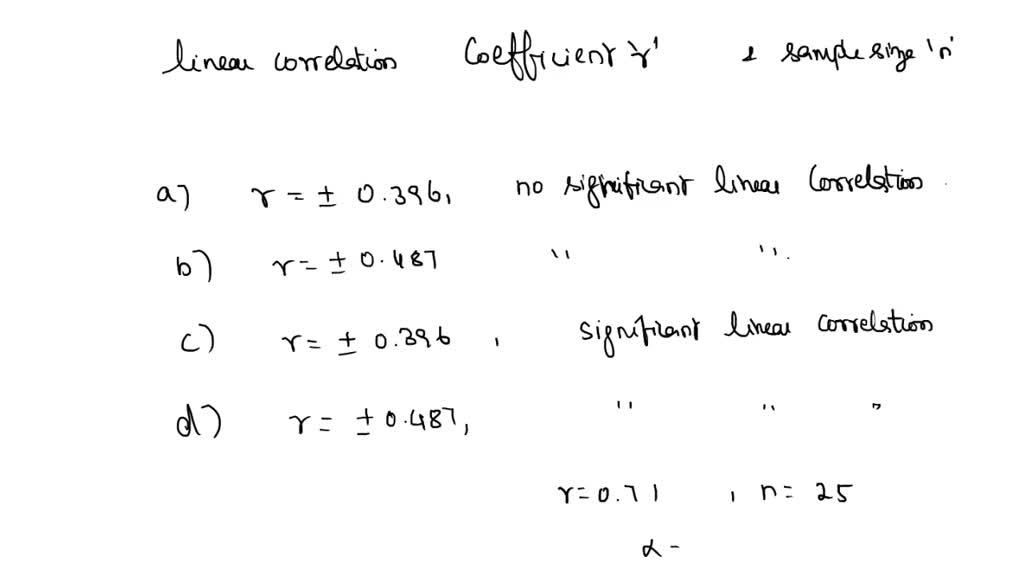 linear correlation Coefficient 'r' & sample size 'n'
a) r = ± 0.396, no significant linear Correlation
b) r = ± 0.487 " ".
c) r = ± 0.396 , significant linear correlation
d) r = ± 0.487, " " "
r = 0.71 , n = 25
α -